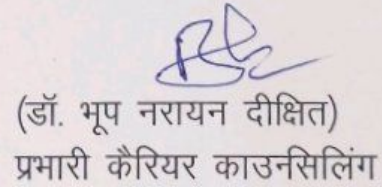 (डॉ. भूप नरायन दीक्षित)
प्रभारी कैरियर काउनसिलिंग